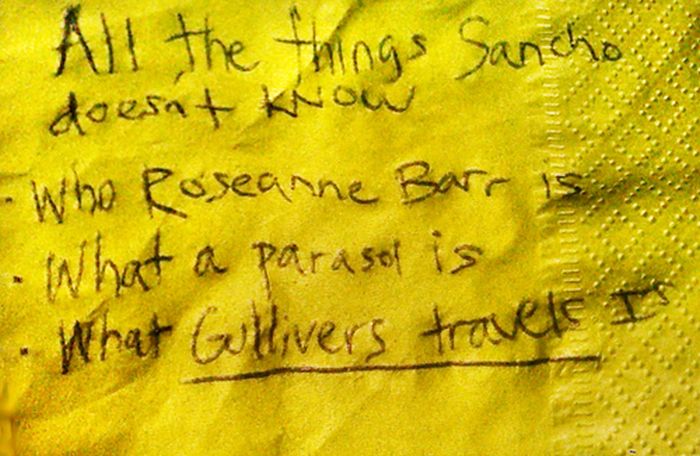 All the things Sancho
doesnt know
- Who Roseanne Barr is
· What a parasol is
· What Gullivers travels Is